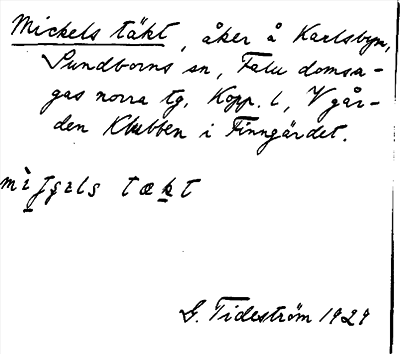 Mickels täkt, åker å Karlsbyn,
Sundborns sn, Falu domsa-
gas norra tg, Kopp. l, V går-
den Klubben i Finngärdet.
tækt
G. Tideström 1929